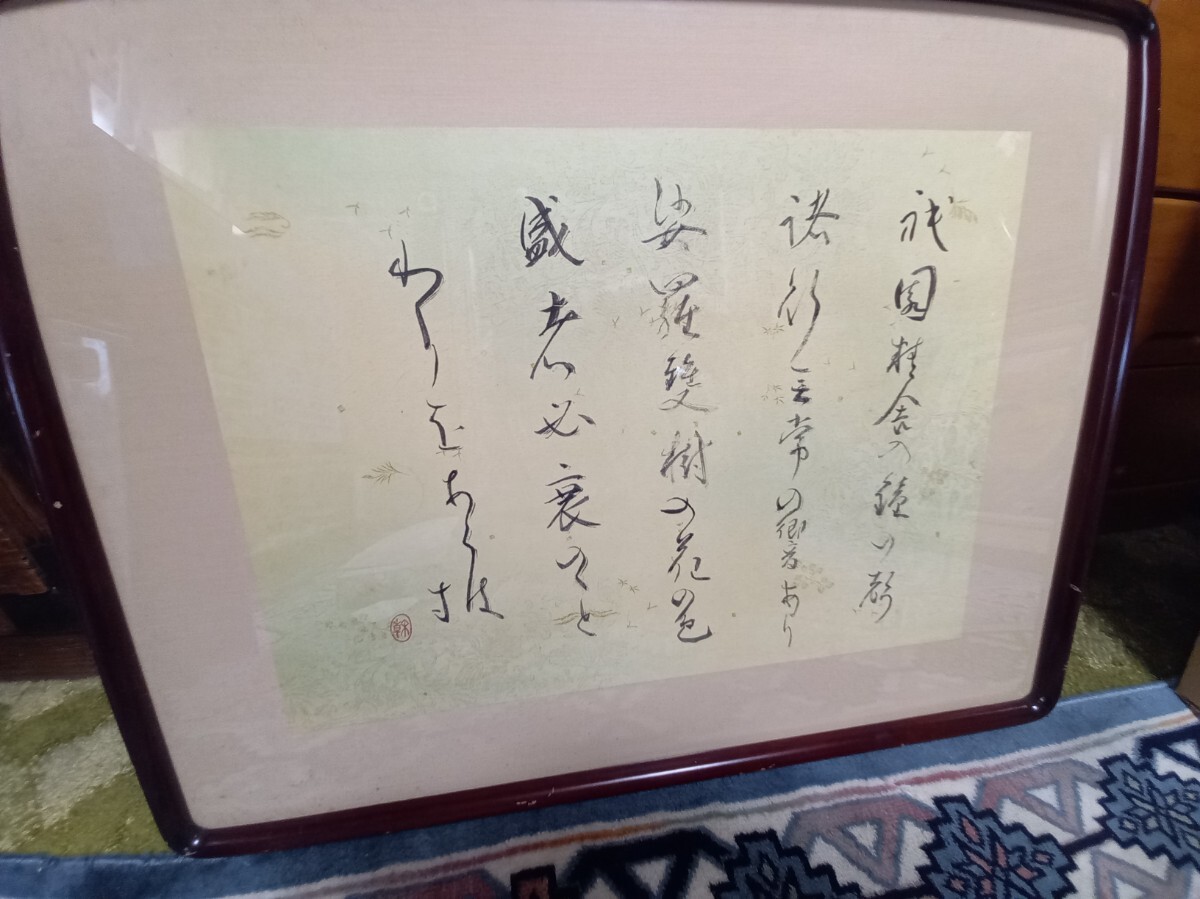 祇園精舎の鐘の聲
諸行無常の響あり
娑羅雙樹の花の色
盛者必衰のこと
わりをあらは
す